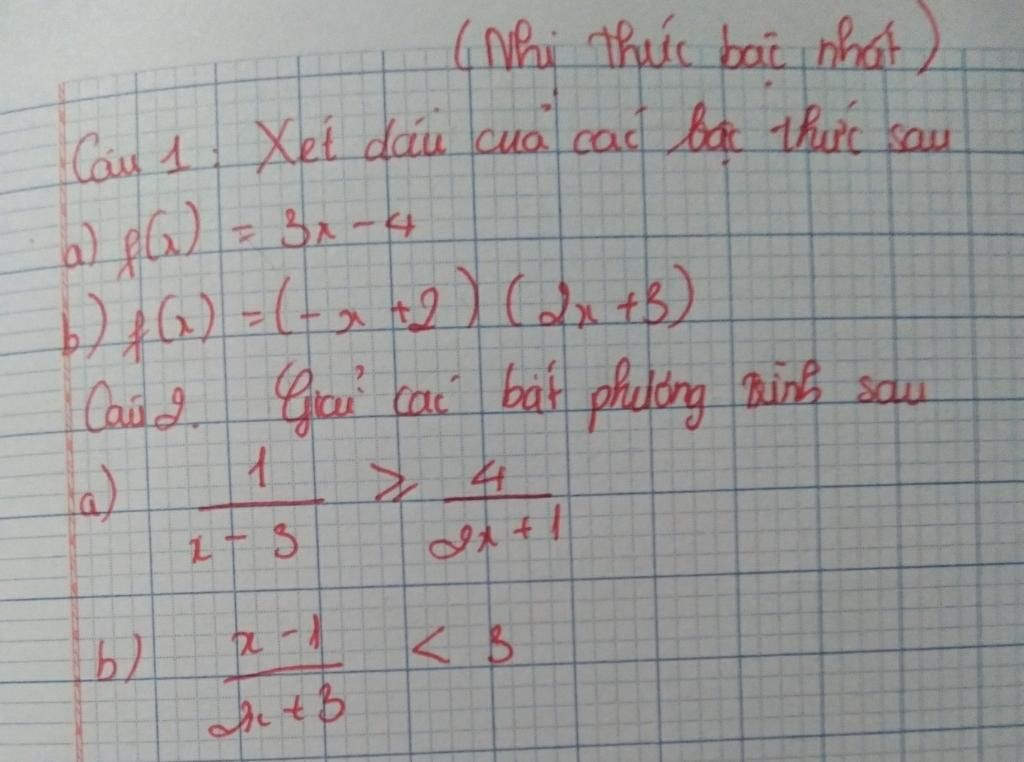 (Nhị thức bậc nhất)
Câu 1: Xét dấu của các bậc thức sau
a) f(x) = 3x - 4
b) f(x) = (-x + 2) (2x + 3)
Câu 2. Giải các bất phương trình sau
a) \frac{1}{x - 3} ≥ \frac{4}{2x + 1}
b) \frac{x - 1}{2x + 3} < 3